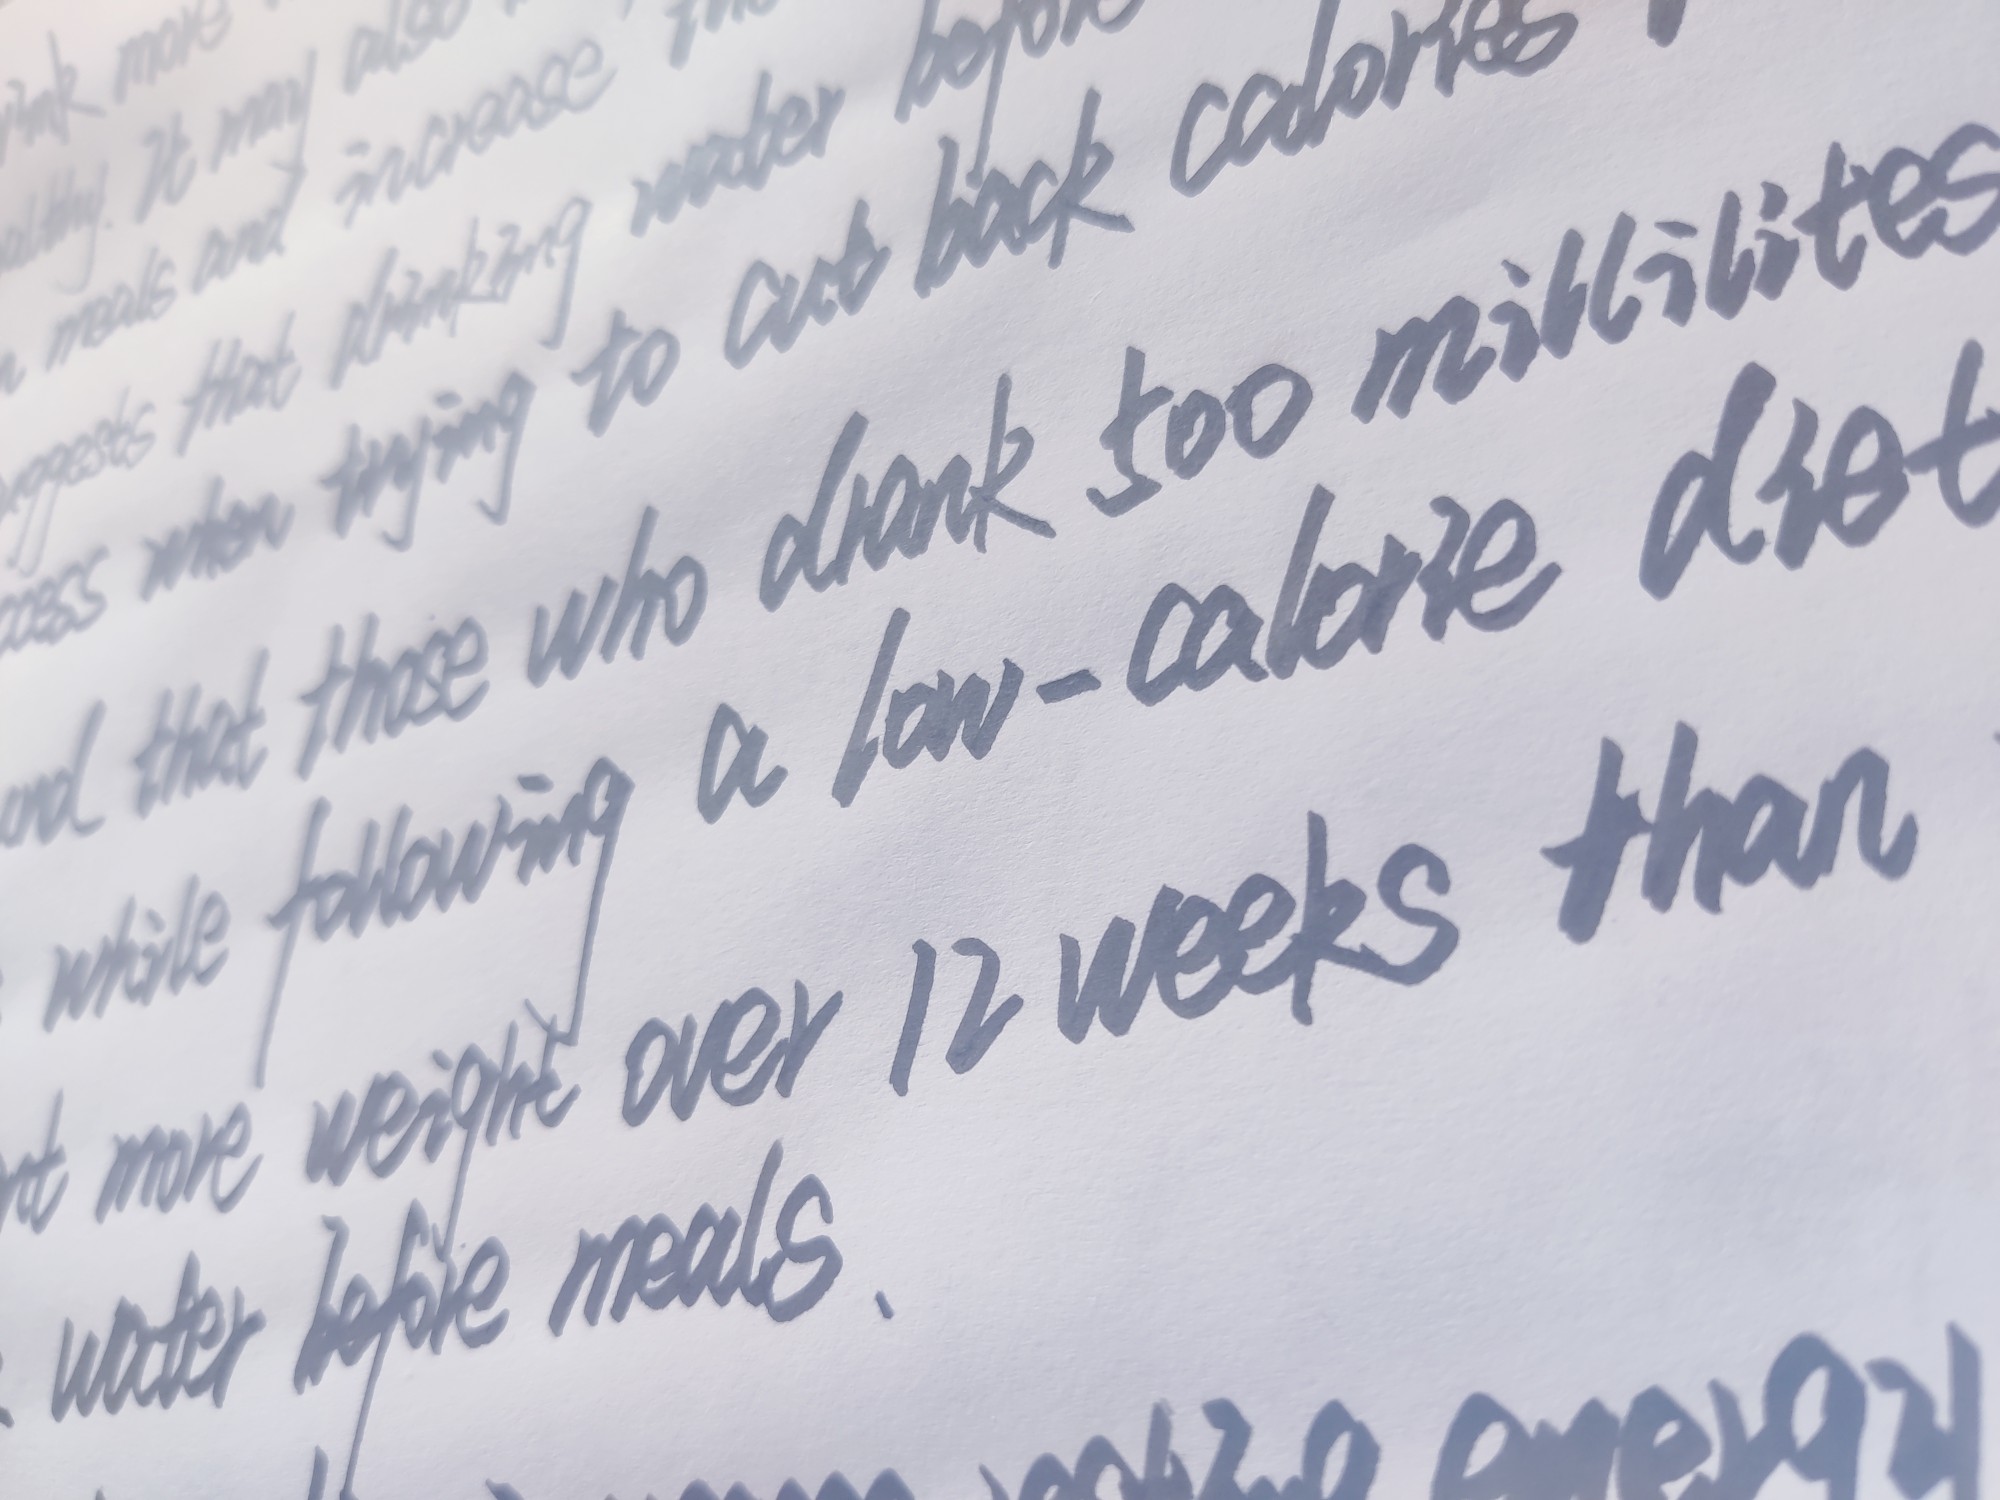 more
healthy. It may also
meals and increase the
suggests that drinking water before
when trying to cut back calories
that those who drank 500 millilites
while following a low-calorie diet
more weight over 12 weeks than
water before meals.
resting energy